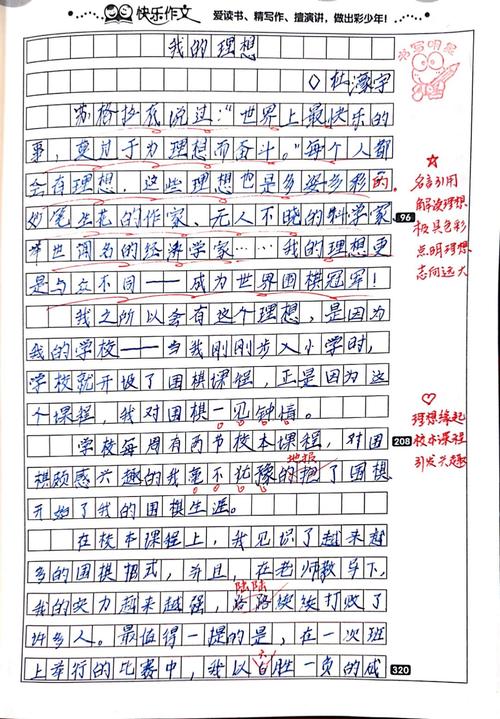 快乐作文 爱读书、精写作、擅演讲，做出彩少年！
我的理想
书写明星
杜濛宇
苏格拉底说过："世界上最快乐的
事，莫过于为理想而奋斗。"每个人都
会有理想，这些理想也是多姿多彩的，
妙笔生花的作家、无人不晓的科学家
96
举世闻名的经济学家……我的理想更
是与众不同——成为世界围棋冠军！
名言引用
解读理想
极具色彩
点明理想
志向远大
我之所以会有这个理想，是因为
我的学校——当我刚刚步入小学时，
学校就开设了围棋课程，正是因为这
个课程，我对围棋一见钟情。
学校每周有两节校本课程，对围
208
地报
棋颇感兴趣的我毫不犹豫的报了围棋
开始了我的围棋生涯。
理想缘起
校本课程
引发兴趣
在校本课程上，我见识了越来越
多的围棋招式，并且，在老师教导下，
陆陆
我的实力越来越强，路路续续打败了
许多人。最值得一提的是，在一次班
上举行的比赛中，我以六胜一负的成
320